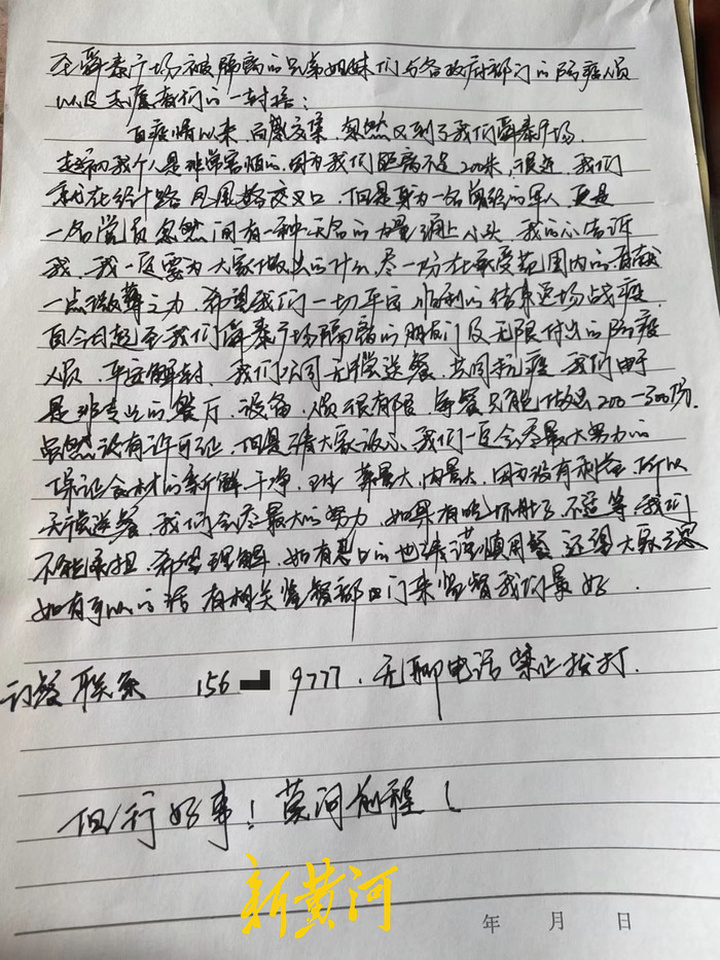 至舜泰广场被隔离的兄弟姐妹们与各政府部门的防疫人员
以及志愿者们的一封信：
自疫情以来，百感交集，忽然又到了我们舜泰广场，
起初我个人是非常害怕的，因为我们距离不足200米，很近，我们
就在经十路凤凰路交叉口，但是身为一名曾经的军人，更是
一名党员忽然间有一种无名的力量涌上心头，我的心告诉
我，我一定要为大家做出点什么，尽一份在承受范围内的贡献
一点微薄之力，希望我们一切平安，顺利的结束这场战疫，
自今日起至我们舜泰广场隔离的朋友们及无限付出的防疫
人员，平安解封，我们公司无偿送餐，共同抗疫，我们由于
是非专业的餐厅，设备，人员很有限，每餐只能做出200-300份，
虽然没有许可证，但是请大家放心，我们一定会尽最大努力的
保证食材的新鲜，干净，卫生，尽量大，因为没有利益，所以
无偿送餐，我们会尽最大的努力，如果有吃坏肚子，不适等，我们
不能承担，希望理解，如有忌口的也请谨慎用餐，还望大家
如有可以的话，有相关监督部门来监督我们最好。
订餐联系 156 9777，无聊电话禁止拨打。
但行好事！莫问前程！
新黄河
年 月 日